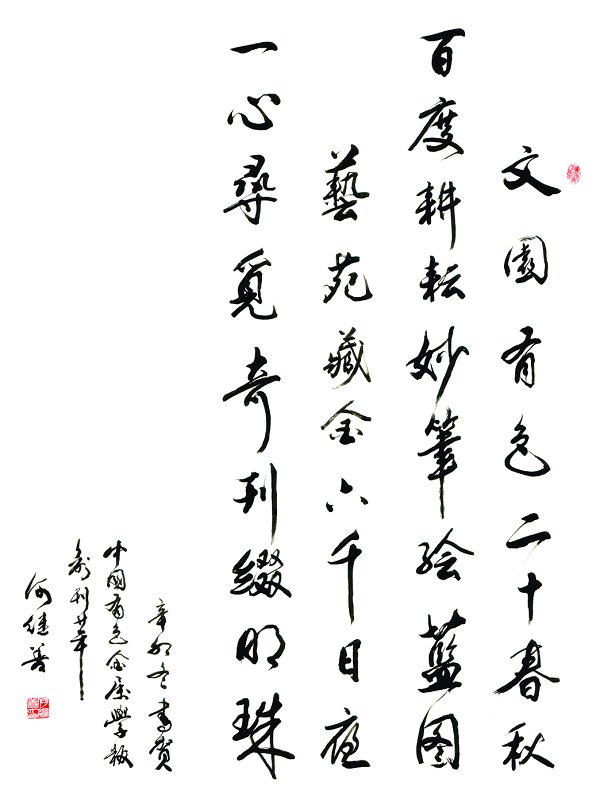 文園有色二十春秋
百度耕耘妙筆繪藍图
藝苑藏金六千日夜
一心尋觅奇刊綴明珠
辛卯冬書賀
中國有色金属學報
創刊廿年
何继善